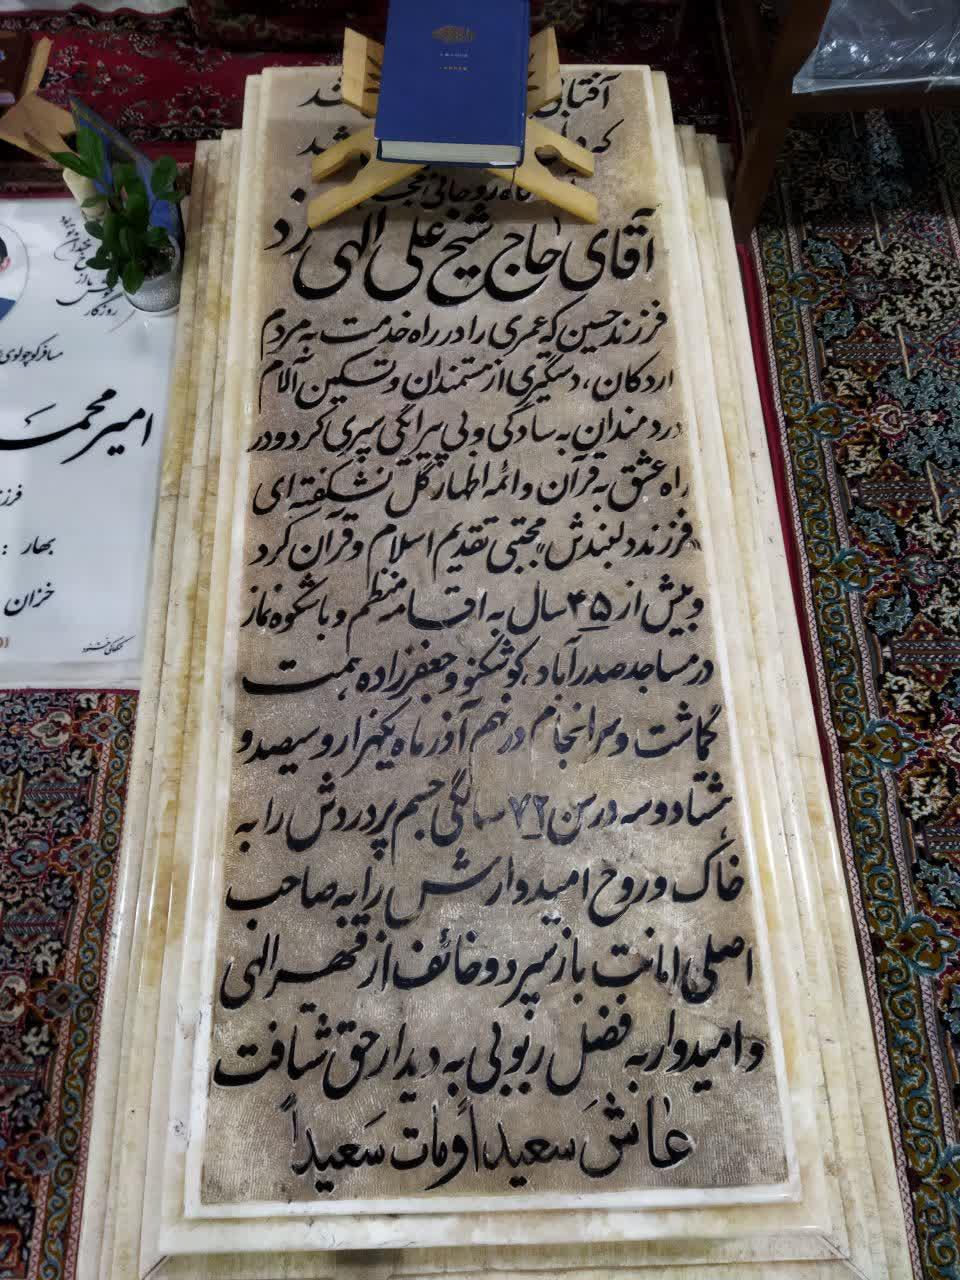 آفتابی
که
روحانی
آقای حاج شیخ علی الهی زد
فرزند حسین که عمری را در راه خدمت به مردم
اردکان، دستگیری از مستمندان و تسکین آلام
دردمندان به سادگی و بی پیرایگی سپری کرد و در
راه عشق به قرآن و ائمه اطهار گل نشکفته ای
فرزند دلبندش «مجتبی» تقدیم اسلام و قرآن کرد
و بیش از ۴۵ سال به اقامه منظم و باشکوه نماز
در مساجد صدرآباد، کوشکنو و جعفرزاده همت
گماشت و سرانجام در نهم آذر ماه یکهزار و سیصد و
هشتاد و سه در سن ۷۲ سالگی جسم پر دردش را به
خاک و روح امیدوارش را به صاحب
اصلی امانت باز سپرد و خائف از قهر الهی
و امیدوار به فضل ربوبی به دیدار حق شتافت
عاشَ سَعیداً و مات سَعیداً
روزگار
مسافر کوچولوی
امیر محمد
فرزند
بهار :
خزان